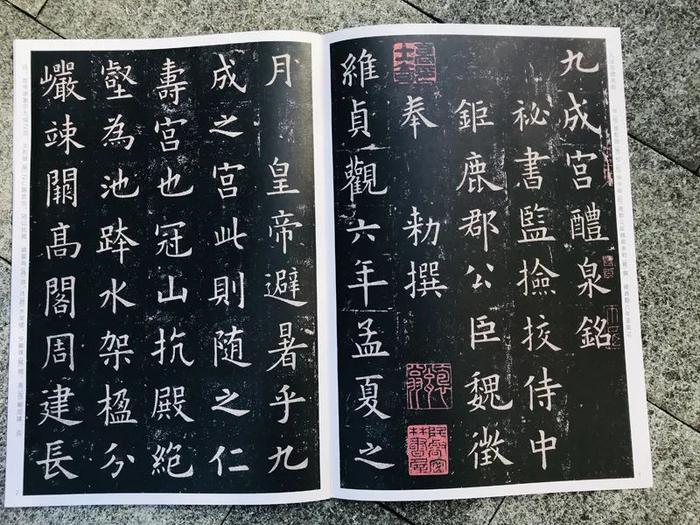 九成宮醴泉銘
秘書監撿挍侍中
鉅鹿郡公臣魏徵
奉 勑撰
維貞觀六年孟夏之
月 皇帝避暑乎九
成之宮此則随之仁
壽宮也冠山抗殿絕
壑為池跨水架楹分
巖竦闕高閣周建長